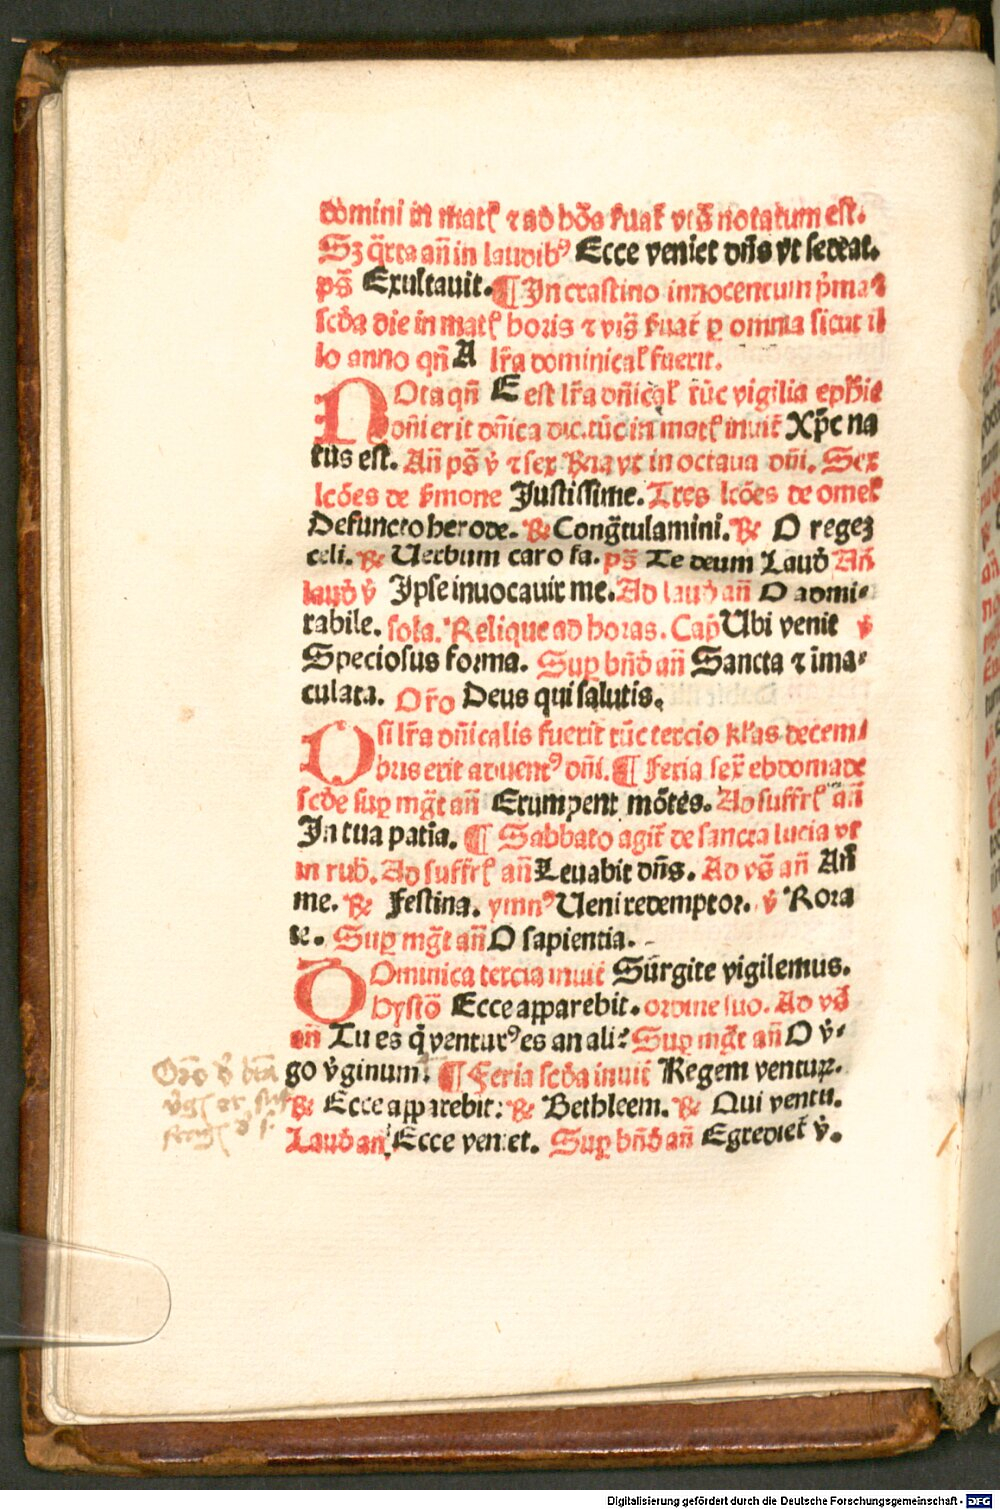 domini in matĺ ⁊ ad hōs ẜuaẗ vtš notatum est.
Sz q̈rta añ in laudibꝰ Ecce veniet dñs vt sedeat.
pš Exultauit. ¶ In crastino innocentum p̄ma ⁊
scďa die in matĺ horis ⁊ viš ẜuaẗ ꝑ omnia sicut il
lo anno qñ A lr̄a dominicaĺ fuerit.
NOta qñ E est lr̄a dñicaĺ tūc vigilia epħie
dn̄i erit dñica dic. tūc in matĺ inuiẗ Xp̄c na
tus est. Añ pš v̇ ⁊ sex ℞ia vt in octaua dñi. Sex
lcões de ẜmone Justissime. Tres lcões de omeĺ
Defuncto herode. ℞ Congr̄tulamini. ℞ O regeʒ
celi. ℞ Uerbum caro fa. pš Te deum Lauď Añ
lauď v̇ Ipse inuocauit me. Ad lauď añ O admi⸗
rabile. sola. Relique ad horas. Cap̄ Ubi venit v̇
Speciosus forma. Suꝑ bñď añ Sancta ⁊ īma⸗
culata. Or̄o Deus qui salutis.
O si lr̄a dñicalis fuerit tūc tercio kl'as decem⸗
bris erit aduentꝰ dñi. ¶ Feria sex̄ ebdomade
scďe suꝑ mḡt añ Erumpent mōtes. Ad suffrĺ añ
In tua patiā. ¶ Sabbato agiẗ de sancta lucia vt
in rub. Ad suffrĺ añ Leuabit dñs. Ad vš añ Añ
me. ℞ Festina. ymnꝰ Ueni redemptor. v̇ Rora
te. Suꝑ mḡt añ O sapientia.
DOminica tercia inuiẗ Surgite vigilemus.
hystō Ecce apparebit. ordine suo. Ad vš
añ Tu es q̇ venturꝰ es an ali⸗ Suꝑ mḡt añ O v̇⸗
go v̇ginum. ¶ Feria scďa inuiẗ Regem ventuꝝ.
℞ Ecce apparebit: ℞ Bethleem. ℞ Qui ventu.
Lauď añ Ecce veniet. Suꝑ bñď añ Egredieẗ v̇.
Digitalisierung gefördert durch die Deutsche Forschungsgemeinschaft - DFG